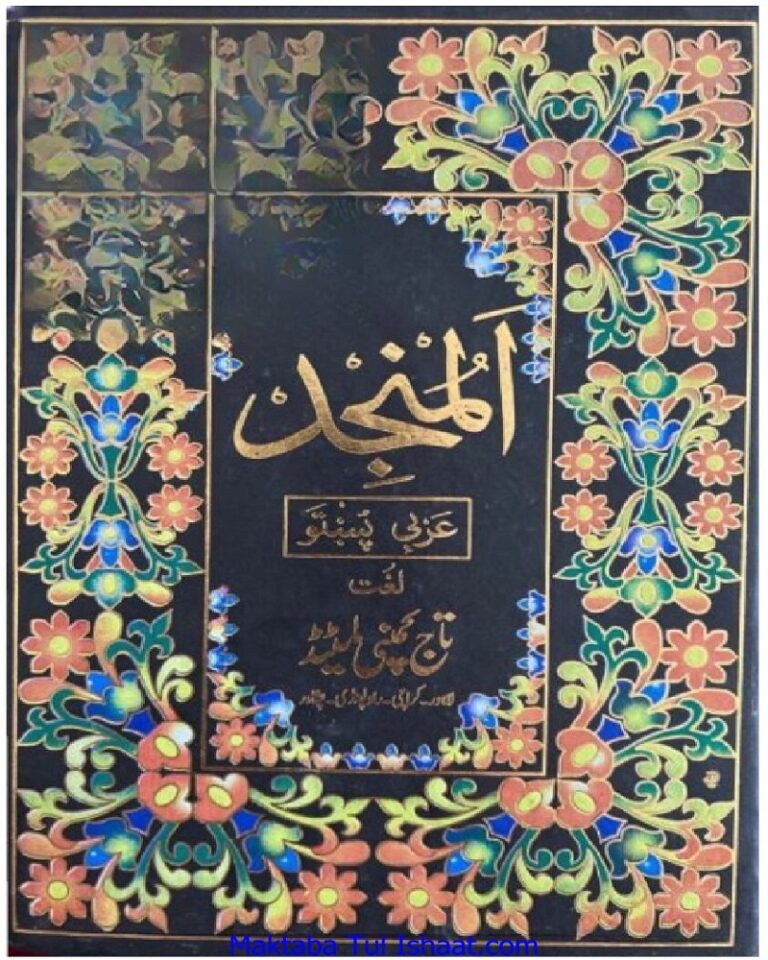 اَلمُنْجِدْ
عَرَبِی پَښتو
لغت
تاج کمپنی لمیٹڈ
لاہور۔ کراچی۔ راولپنڈی۔ پشاور
Maktaba Tul Ishaat.com